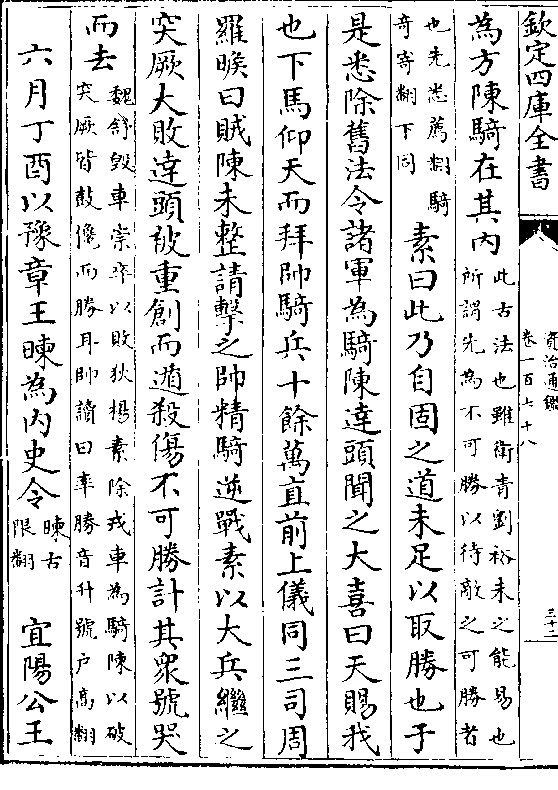 欽定四庫全書
資治通鑑
卷一百七十八
三十二
為方陳騎在其內
此古法也雖衛青劉裕未之能易也
所謂先為不可勝以待敵之可勝者
也先悉薦翻騎
奇寄翻下同
素曰此乃自固之道未足以取勝也于
是悉除舊法令諸軍為騎陳達頭聞之大喜曰天賜我
也下馬仰天而拜帥騎兵十餘萬直前上儀同三司周
羅睺曰賊陳未整請擊之帥精騎逆戰素以大兵繼之
突厥大敗達頭被重創而遁殺傷不可勝計其衆號哭
而去
魏舒毁車崇卒以敗狄楊素除戎車為騎陳以破
突厥皆鼓儳而勝耳帥讀曰率勝音升號户高翻
六月丁酉以豫章王暕為内史令
暕古
限翻
宜陽公王